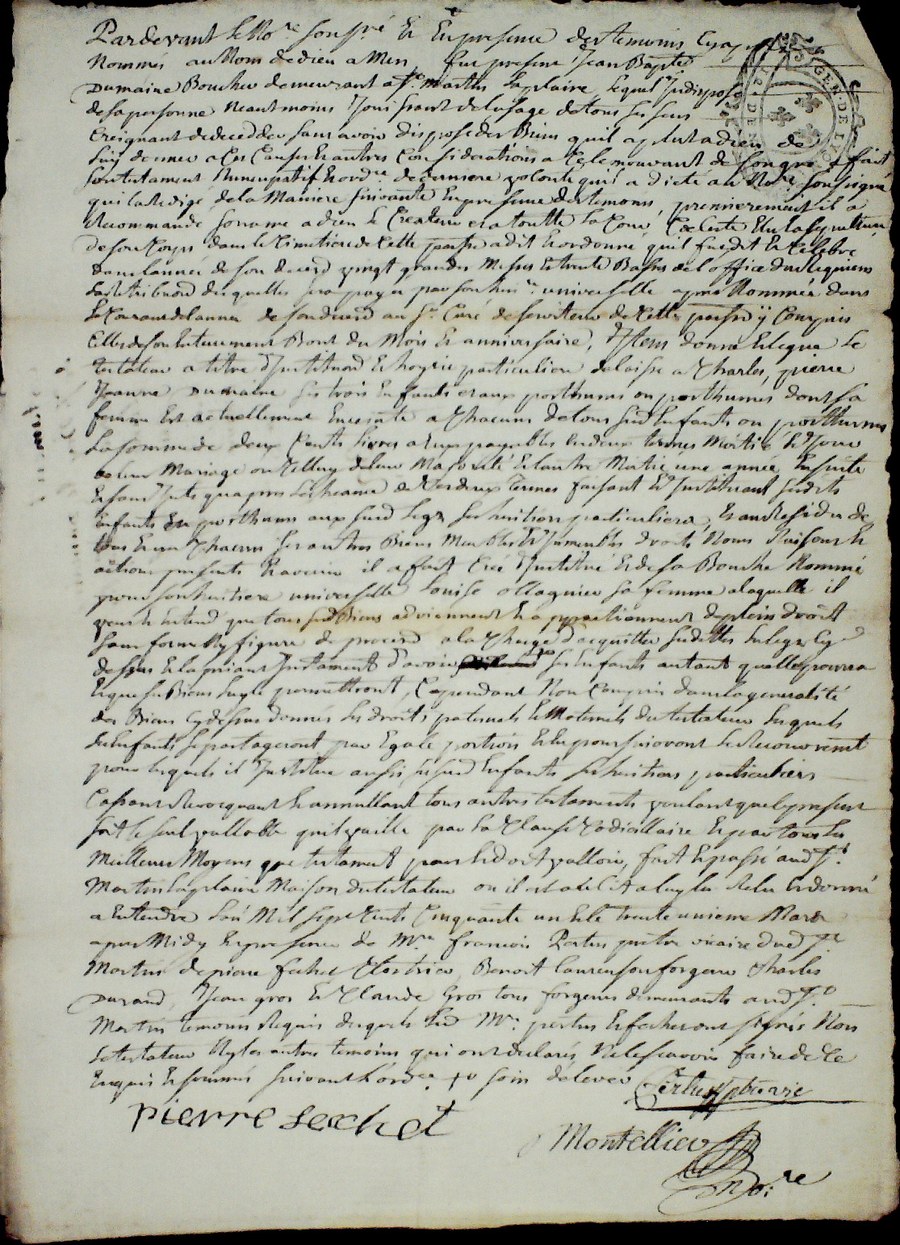 Pardevant le No.re sous.né Et En presence des temoins cy ap
Nommés au Nom de dieu amen, fut present Jean Baptis
Dumaine Boucher demeurant a St. Martin laplaine lequel Indispose
de sa personne Neantmoins Jouissant de lusage de tous ses sens
Creignant de decedder sans avoir disposé des Biens quil a plut a dieu de
luy donner a Ces Causes Et autres Considerations a Ce le mouvant de son gré a fait
son testament Nuncupatif Et ordre de derniere volonté quil a dicté au No.re soussigné
qui la Redigé de la Maniere suivante En presence des temoins, premierement il a
Recommandé son ame a dieu le Createur et a toutte la Cour Celeste Elu la sepulture
de son Corps dans le Cimetiere de Cette parr.se a dit Et ordonné qu'il fut dit Et Celebré
dans lannée de son deced vingt grandes Messes Et trente Basses de l'office de requiem
la Retribution desquelles sera payée par son heri.re universelle apres Nommée dans
le Courant de lannée de son deced au Sr. Curé desserviteur de Cette parr.se y Compris
Celles de son Enterrement Bout du Mois Et anniversaire, Item donne Et legue le
testateur a titre d'Institution Et hoyrie particuliere delaisse a Charles, pierre
Jeanne Dumaine ses trois Enfants et aux posthumes ou posthumes dont sa
femme Est actuellement Enceinte a Chacun de tous sesd. Enfants ou posthumes
la somme de deux Cents livres a Eux payables En deux termes Moitié le Jour
de leur Mariage ou Celluy de leur Majorité Et lautre Moitié une année Ensuite
Et sans Interets qu'apres lecheance de Ces deux termes faisant Et Instituant sesdits
Enfants Et posthumes aux susd. legs ses heritiers particuliers, Et au Residu de
tous Et un Chacun ses autres Biens Meubles Et Immeubles droits Noms Raisons Et
actions presents Et avenir il a fait Créé Institué Et de sa Bouche Nommé
pour son heritiere universelle Louise ollagnier sa femme a laquelle il
veut Et Entend que tous sesd. Biens adviennent Et appartiennent de plein droit
sans forme Ny figure de procès a la Charge d'acquitter ses dettes Et legs Cy
dessus Et le present Testament d'avoir ses Enfants autant quelle pourra
Et que ses Biens luy permettront, Cependant Non Compris dans la generalité
des Biens Cy dessus donnés les droits paternels Et Maternels du testateur lesquels
sesd. Enfants Se partageront par Egale portion Et En poursuivront le Recouvrement
pour lesquels il Institue aussi sesd. Enfants ses heritiers particuliers
Cassant Revocquant Et annullant tous autres testaments voulant que le present
soit le seul vallable qu'il vaille par la Clause Codicillaire Et par tous les
Meilleurs Moyens que testament peut Et doit valloir, fait Et passé aud. St.
Martin laplaine Maison du testateur ou il est alité a luy lu Relu Et donné
a Entendre L'an Mil sept Cents Cinquante un Et le trente unieme Mars
apres Midy En presence de Mre francois Pertus pretre vicaire dud. St.
Martin de pierre sechet, Benoit laurenson forgeur Charles
Durand, Jean gros Et Claude Gros tous forgeurs demeurants aud. St.
Martin temoins Requis desquels led. Mre. pertus Et sechet ont signés Non
le testateur Ny les autres temoins qui ont declarés Ne le sçavoir faire de Ce
Enquis Et sommés suivant l'ord.ce
Pertus ptre vic
pierre sechet
Montellier
No.re
GEN. DE LYON